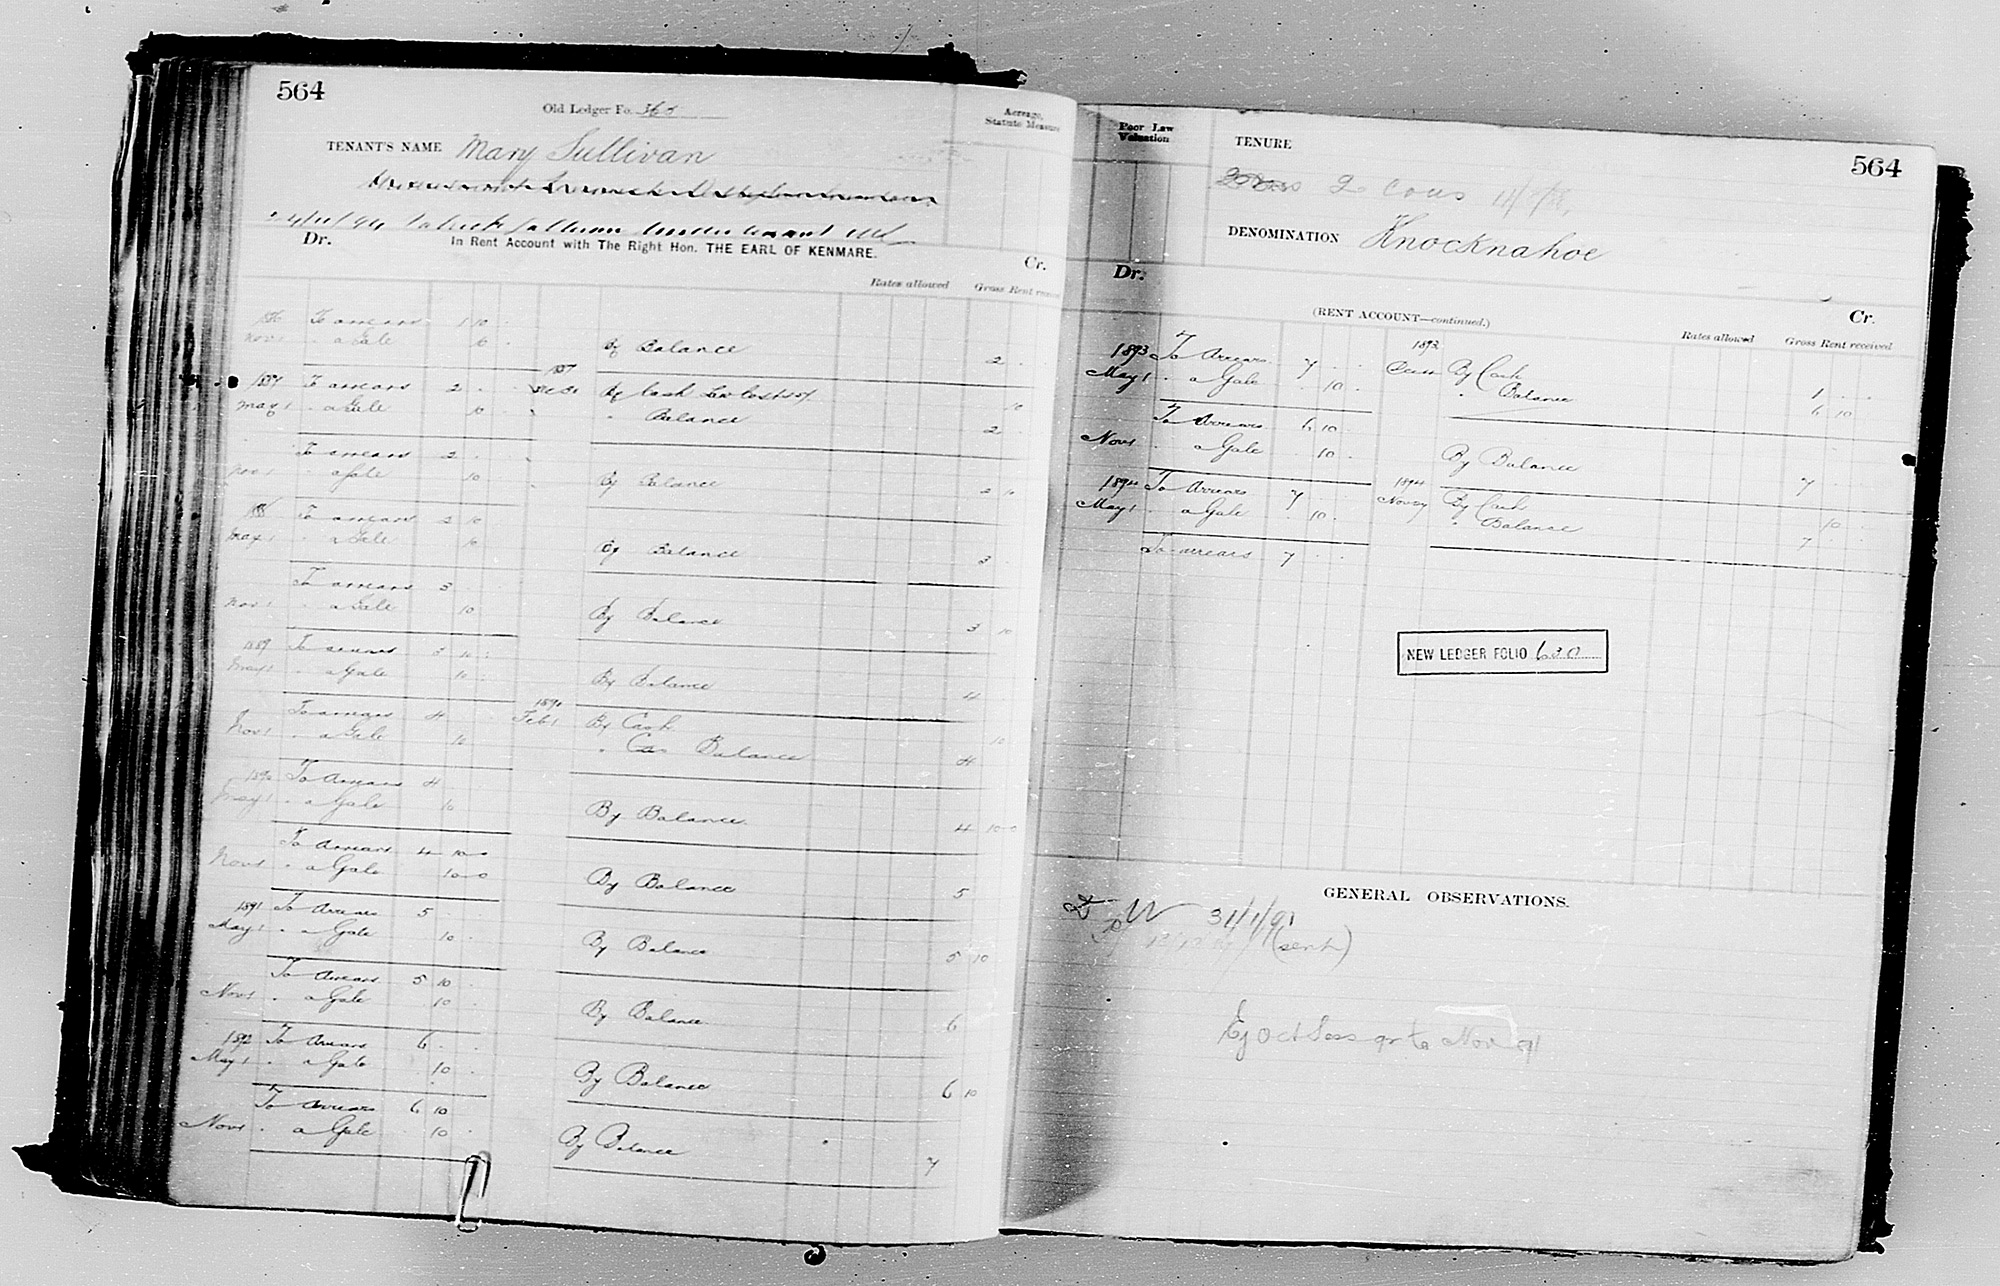 564
Old Ledger Fo. 565
Acreage, Statute Measure
TENANT'S NAME Mary Sullivan
Patrick Sullivan
Dr. In Rent Account with The Right Hon. THE EARL OF KENMARE. Cr.
Rates allowed Gross Rent
To arrears 1 10
Nov 1 " a Gale 10 By Balance 2
1887 To arrears 2 By Cash 10
May 1 " a Gale 10 " Balance 2
To arrears 2
Nov 1 " a Gale 10 By Balance 2 10
To arrears 2 10
May 1 " a Gale 10 By Balance 3
To arrears 3
Nov 1 " a Gale 10 By Balance 3 10
1889 To arrears 3 10
May 1 " a Gale 10 By Balance 4
To arrears 4 1890 Feb 1 By Cash 10
Nov 1 " a Gale 10 " Balance 4
1890 To Arrears 4
May 1 " a Gale 10 By Balance 4 10 0
To Arrears 4 10 0
Nov 1 " a Gale 10 0 By Balance 5
1891 To Arrears 5
May 1 " a Gale 10 By Balance 5 10
To Arrears 5 10
Nov 1 " a Gale 10 By Balance 6
1892 To Arrears 6
May 1 " a Gale 10 By Balance 6 10
To Arrears 6 10
Nov 1 " a Gale 10 By Balance 7
564
Poor Law Valuation
TENURE
2 Cous
DENOMINATION Knocknahoe
Dr. Cr.
(RENT ACCOUNT—continued.)
Rates allowed Gross Rent received
1893 To Arrears 7 1893 By Cash 1
May 1 " a Gale 10 " Balance 6 10
To Arrears 6 10
Nov 1 " a Gale 10 By Balance 7
1894 To Arrears 7 1894 By Cash 10
May 1 " a Gale 10 " Balance 7
To arrears 7
NEW LEDGER FOLIO 630
GENERAL OBSERVATIONS.
31/1/91
(sent)
Ej Oct Sess to Nov 91